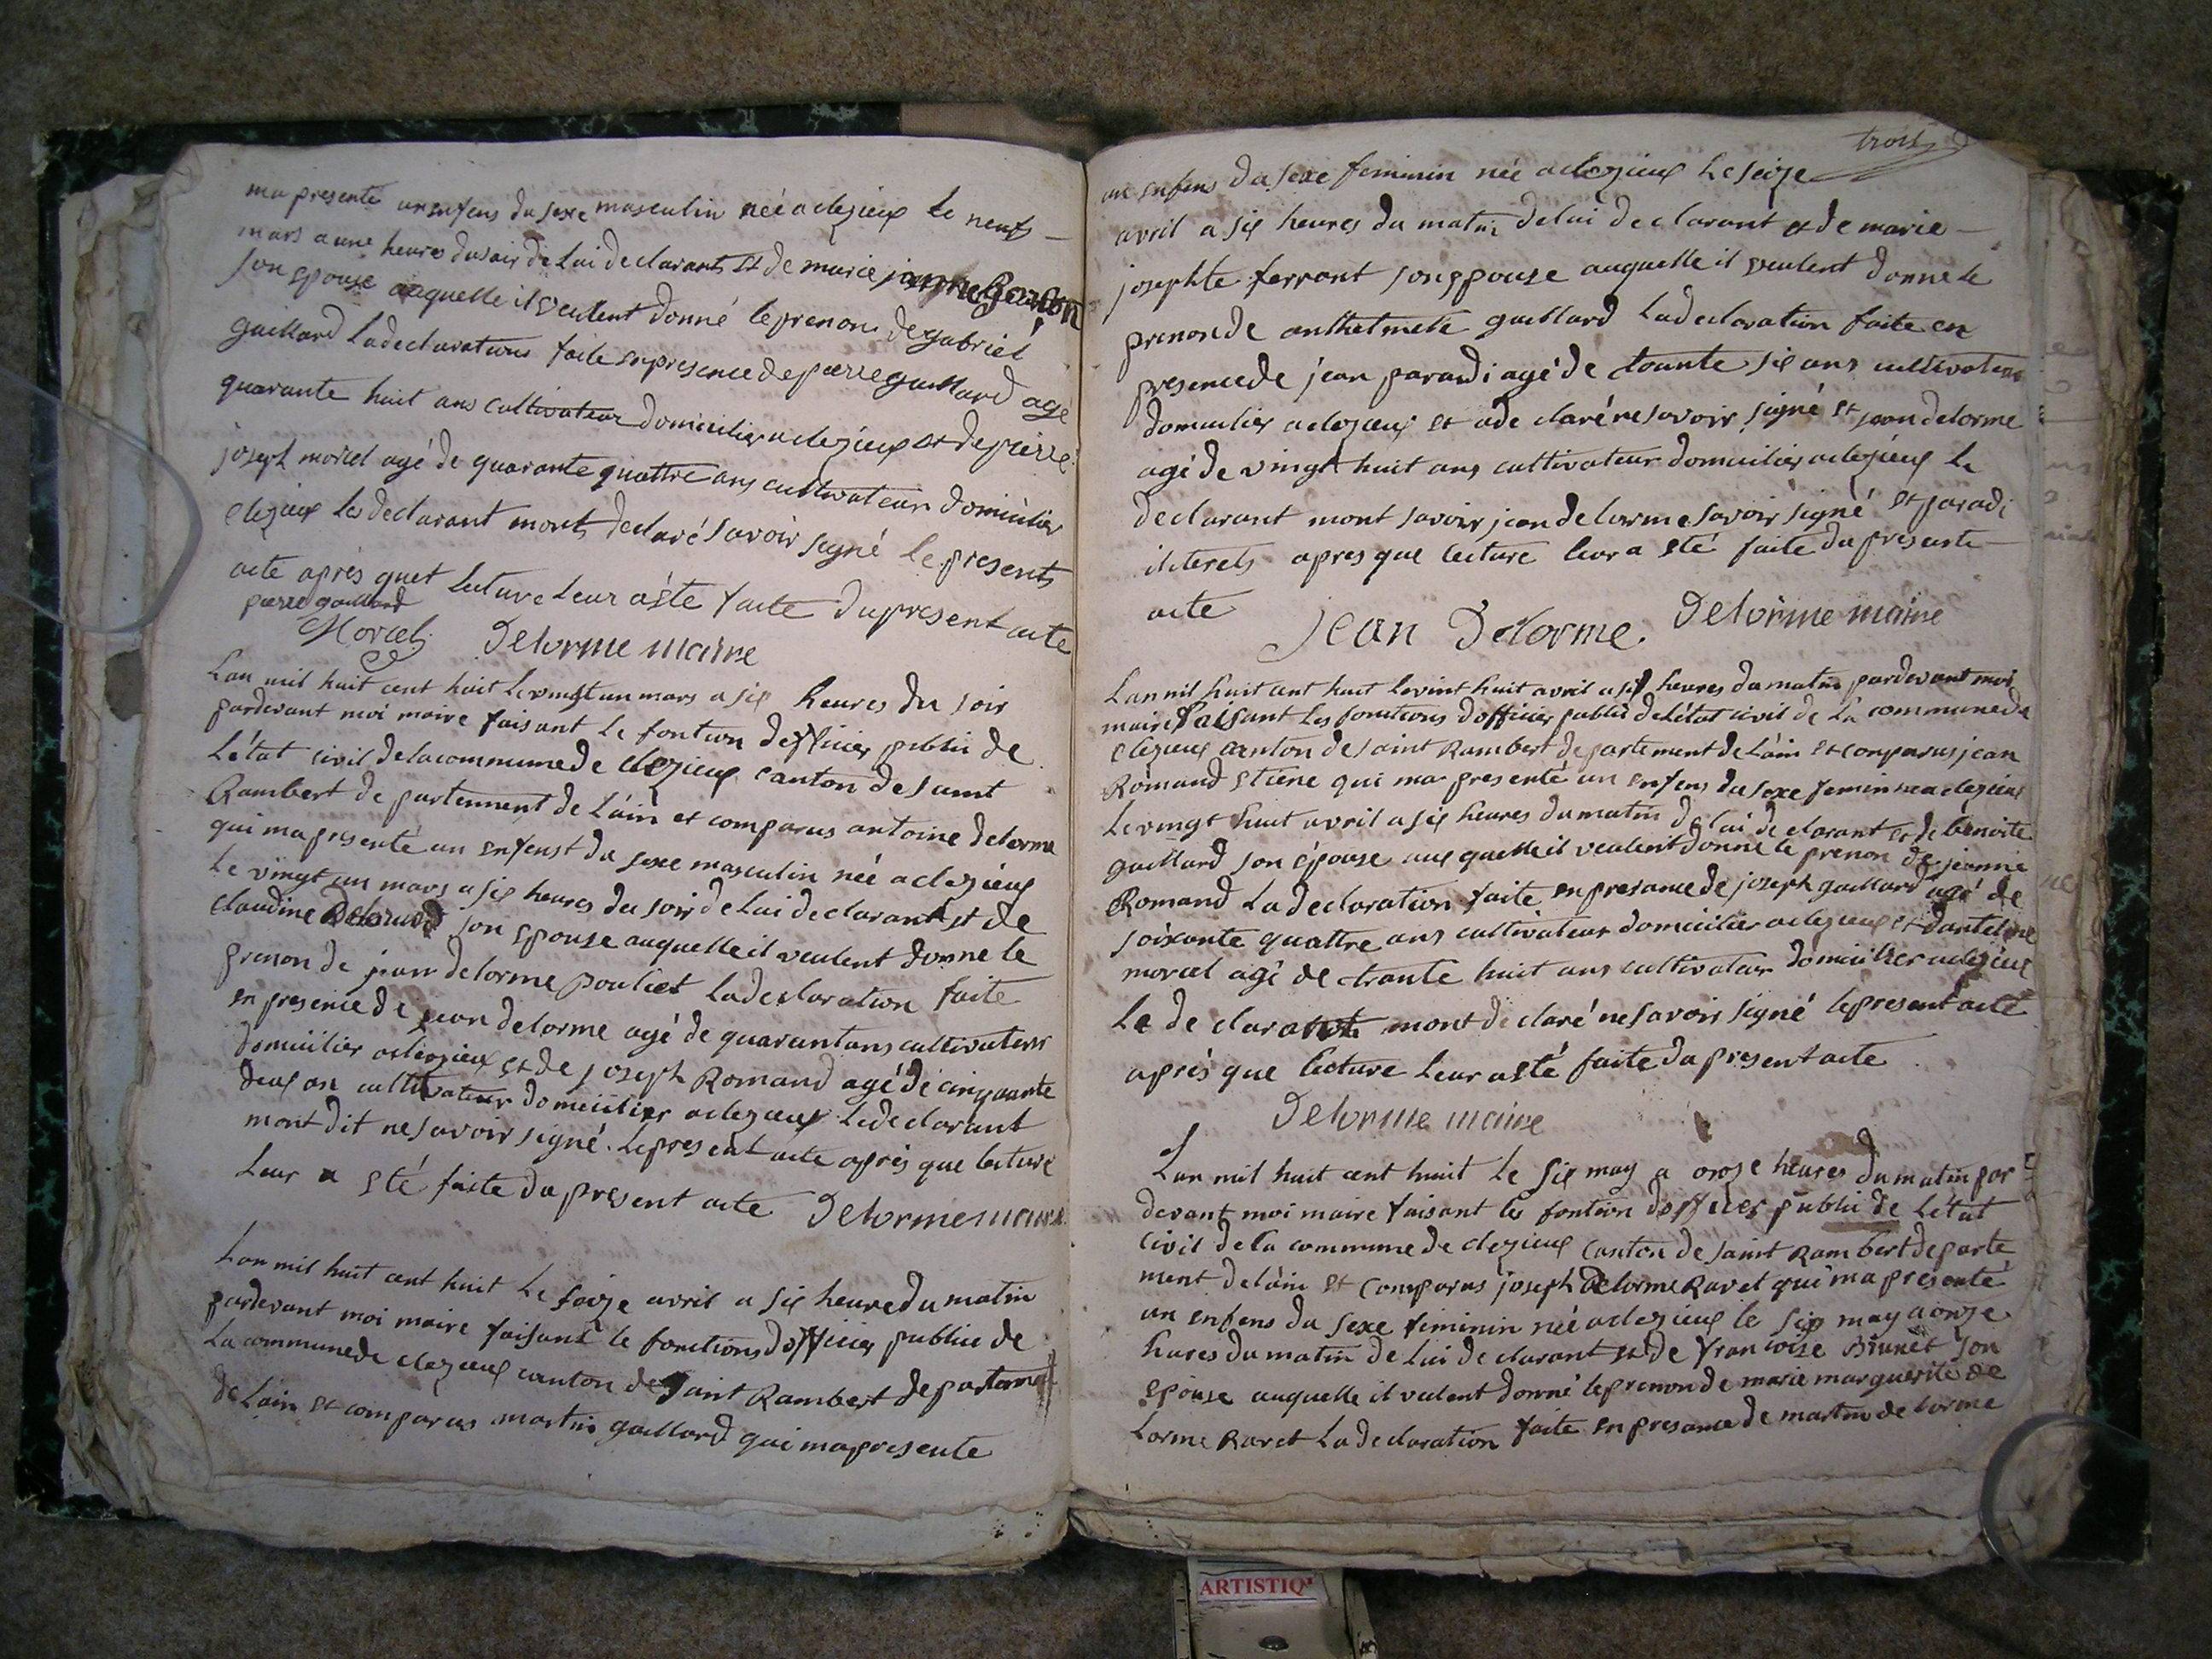 ma presenté un enfens du sexe masculin née a clezieux le neuf
mars a une heure du soir de lui declarant et de marie janne
son epouse auquelle il veulent donné le prenon de gabriel
gaillard la declarations faite en presence de pierre gaillard agé
quarante huit ans cultivateur domicilier a clezieux et de pierre
joseph morcel agé de quarante quattre ans cultivateur domicilier
clezieux les declarant mont declaré savoir signé le presents
acte après quet lecture leur a éte faite du present acte
pierre gaillard
Morcel Delorme maire
Lan mil huit cent huit le vingt un mars a six heures du soir
pardevant moi maire faisant le fontion dofficier public de
L'état civil de la commune de clezieux canton de saint
Rambert departement de L'ain et comparus antoine delorme
qui ma presenté un enfenst du sexe masculin née a clezieux
Le vingt un mars a six heures du soir de Lui declarant et de
claudine son epouse auquelle il veulent donne le
prenon de jean delorme pouliet la declaration faite
en presence de jean delorme agé de quarantans cultivateur
domicilier a clezieux et de joseph Romand agé de cinquante
deux an cultivateur domicilier a clezieux le declarant
mont dit ne savoir signé le present acte après que lecture
Leur a eté faite du present acte Delorme maire
Lan mil huit cent huit Le seize avril a six heure du matin
pardevant moi maire faisant le fonctions dofficier public de
La commune de clezieux canton de Saint Rambert departement
de Lain et comparus martin gaillard qui ma presente
trois
un enfens du sexe feminin née a clezieux Le seize
avril a six heures du matin de lui declarant et de marie
josephte ferrant son epouse auquelle il veulent donne le
prenon de anthelmete gaillard La declaration faite en
presence de jean paradi agé de trante six ans cultivateur
domicilier a clezieux et a declaré ne savoir signé et jean delorme
agé de vingt huit ans cultivateur domicilier a clezieux Le
declarant mont savoir jean delorme savoir signé et paradi
iliterets apres que lecture leur a eté faite du presente
acte Jean Delorme Delorme maire
Lan mil huit cent huit le vint huit avril a six heures du matin pardevant moi
maire faisant les fonctions dofficier public de létat civil de La commune de
clezieux canton de saint Rambert departement de Lain et comparus jean
Romand etiene qui ma presenté un enfens du sexe feminin nea clezieux
Le vingt huit avril a six heures du matin de lui declarant et de benoite
gaillard son épouse auxquelle il veulent donné le prenon de jeanne
Romand La declaration faite en presance de joseph gaillard agé de
soixante quattre ans cultivateur domicilier a clezieux et dantelme
morcel agé de trante huit ans cultivateur domicilier a clezieux
Le declarant mont declaré ne savoir signé le present acte
après que lecture leur a eté faite du present acte
Delorme maire
Lan mil huit cent huit Le six may a onze heures du matin par
devant moi maire faisant les fontion dofficier public de Létat
civil de la commune de clezieux canton de saint Rambert departe
ment de lain et comparus joseph delorme Ravet qui ma presenté
un enfens du sexe feminin née a clezieux le six may a onze
heures du matin de Lui declarant et de francoise Brunet son
epouse auquelle il veulent donné le prenon de marie marguerite de
Lorme Ravet La declaration faite en presance de martin delorme
ARTISTIQ